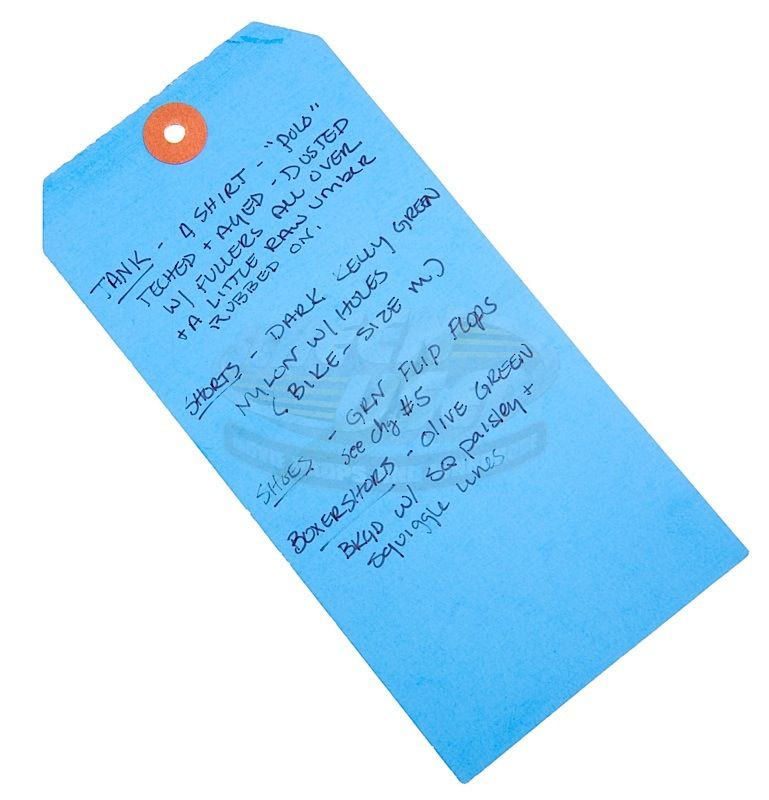 TANK - A SHIRT - "POLO"
TECHED + AGED - DUSTED
W/ FULLERS ALL OVER
+ A LITTLE RAW UMBER
RUBBED ON.
SHORTS - DARK KELLY GREEN
NYLON W/ HOLES
(BIKE - SIZE M.)
SHOES - GRN FLIP FLOPS
see chg #5
BOXERSHORTS - OLIVE GREEN
BKGD W/ SQ paisley +
squiggle lines